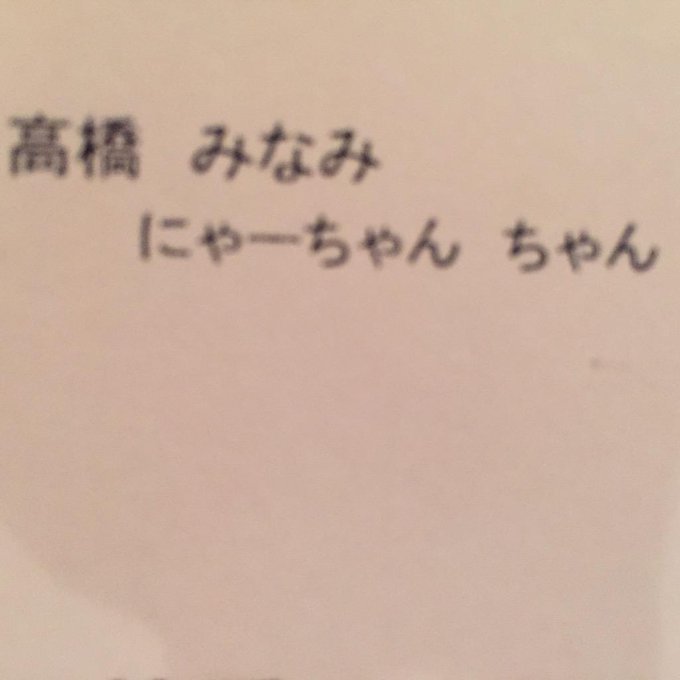 高橋 みなみ
にゃーちゃん ちゃん